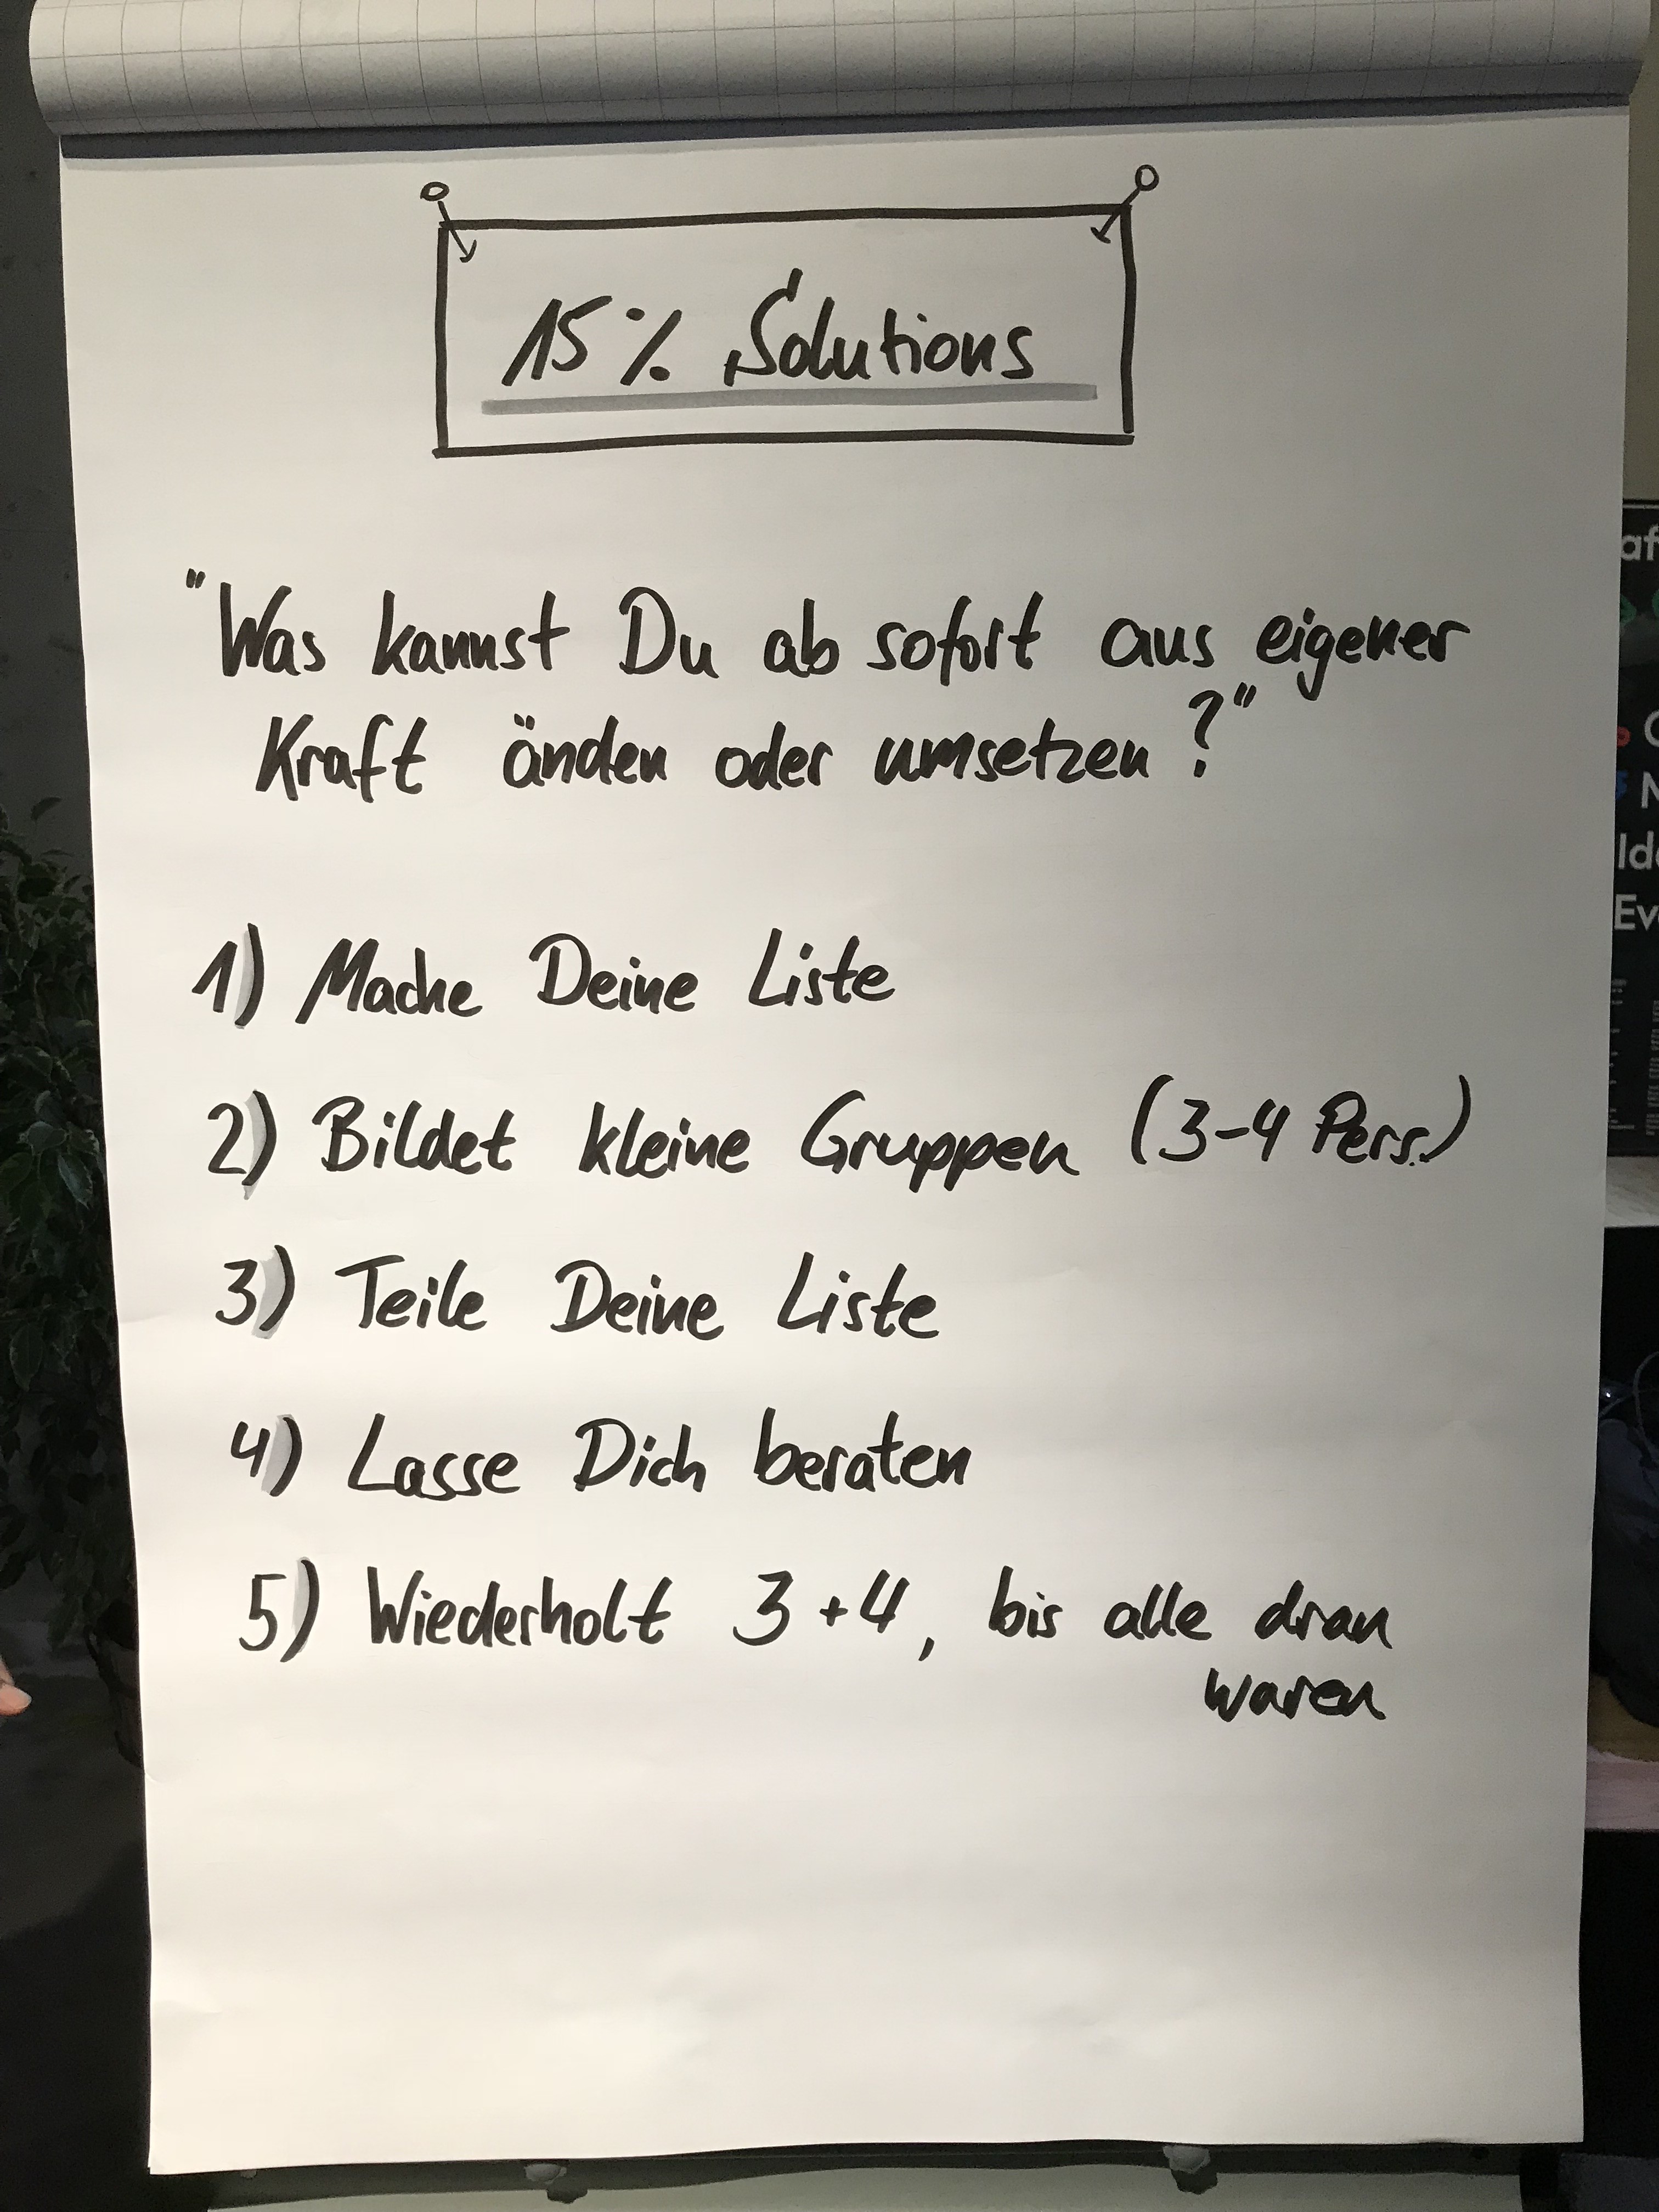 15% Solutions
"Was kannst Du ab sofort aus eigener
Kraft änden oder umsetzen?"
1) Mache Deine Liste
2) Bildet kleine Gruppen (3-4 Pers.)
3) Teile Deine Liste
4) Lasse Dich beraten
5) Wiederholt 3+4, bis alle dran
waren